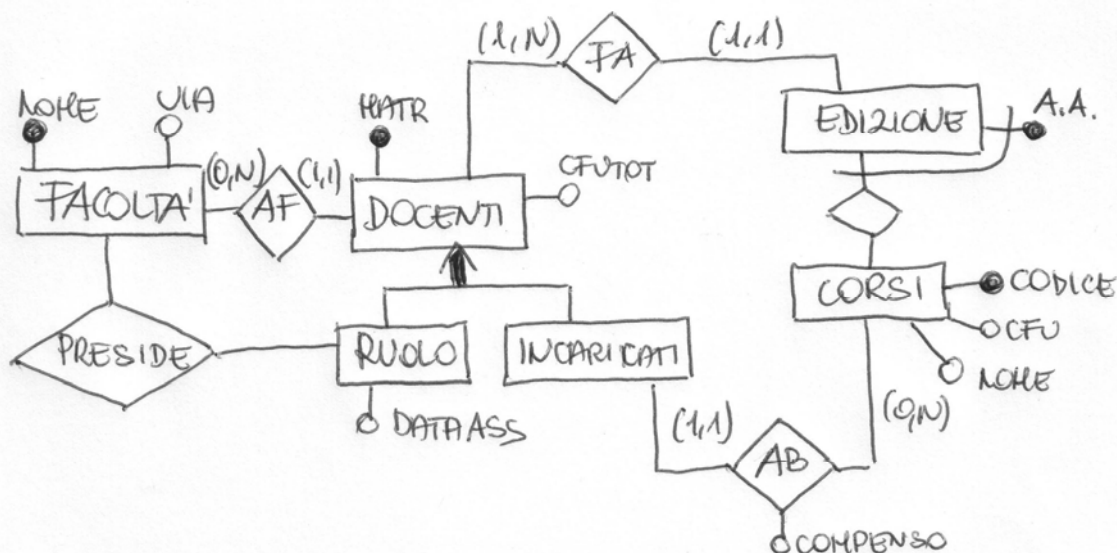 (1,N)
FA
(1,1)
NOME
VIA
MATR
EDIZIONE
A.A.
(0,N)
(1,1)
CFUTOT
FACOLTA'
AF
DOCENTI
CORSI
CODICE
CFU
NOME
PRESIDE
RUOLO
INCARICATI
DATA ASS
(1,1)
(0,N)
AB
COMPENSO